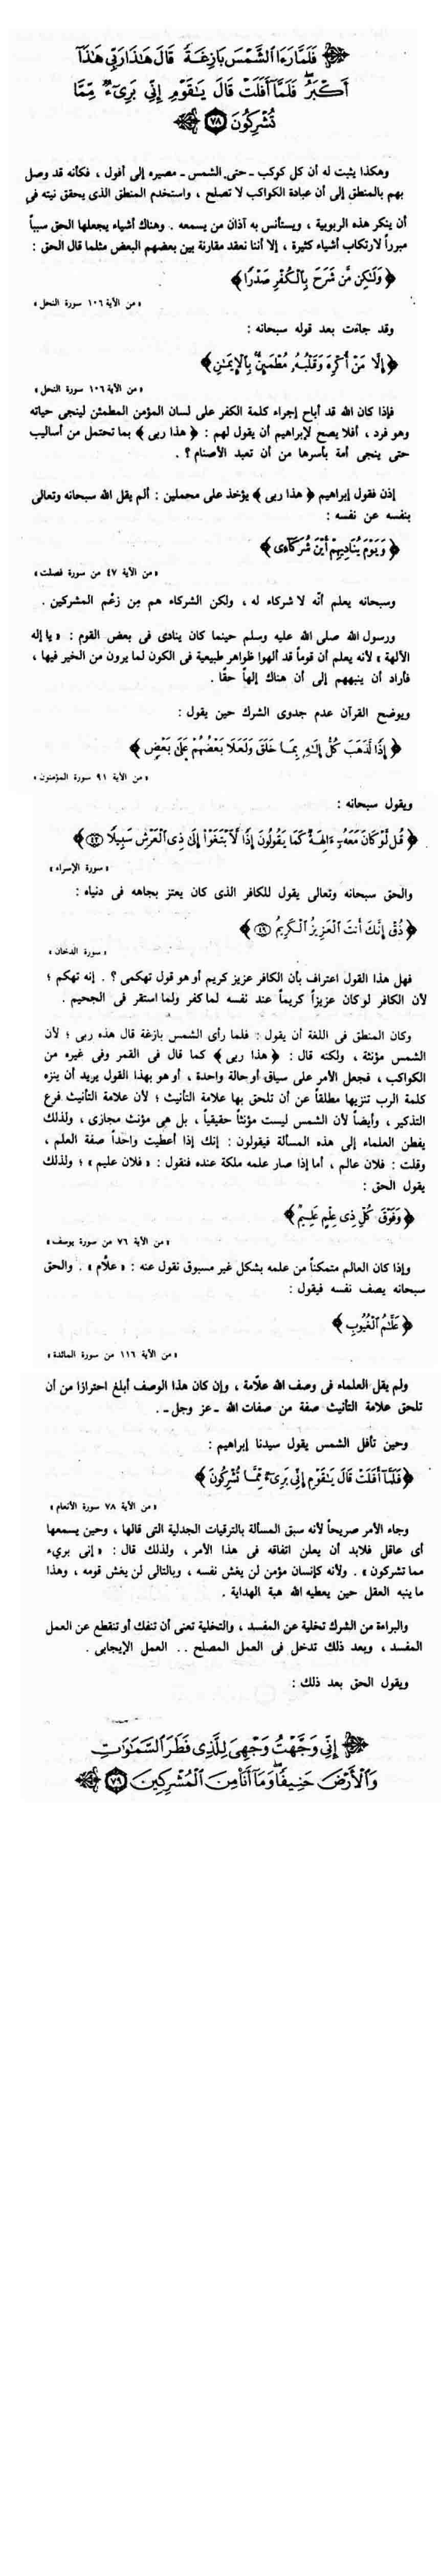 فَلَمَّا رَءَا ٱلشَّمْسَ بَازِغَةً قَالَ هَـٰذَا رَبِّى هَـٰذَآ
أَكْبَرُ ۖ فَلَمَّآ أَفَلَتْ قَالَ يَـٰقَوْمِ إِنِّى بَرِىٓءٌ مِّمَّا
تُشْرِكُونَ ٧٨
وهكذا يثبت له أن كل كوكب - حتى الشمس - مصيره إلى أفول ، فكأنه قد وصل
بهم بالمنطق إلى أن عبادة الكواكب لا تصلح ، واستخدم المنطق الذى يحقق نيته فى
أن ينكر هذه الربوبية ، ويستأنس به آذان من يسمعه . وهناك أشياء يجعلها الحق سبباً
مبرراً لارتكاب أشياء كثيرة ، إلا أننا نعقد مقارنة بين بعضهم البعض مثلما قال الحق :
﴿ وَلَـٰكِن مَّن شَرَحَ بِٱلْكُفْرِ صَدْرًا ﴾
« من الآية ١٠٦ سورة النحل »
وقد جاءت بعد قوله سبحانه :
﴿ إِلَّا مَنْ أُكْرِهَ وَقَلْبُهُۥ مُطْمَئِنٌّۢ بِٱلْإِيمَـٰنِ ﴾
« من الآية ١٠٦ سورة النحل »
فإذا كان الله قد أباح إجراء كلمة الكفر على لسان المؤمن المطمئن لينجى حياته
وهو فرد ، أفلا يصح لإبراهيم أن يقول لهم : ﴿ هذا ربى ﴾ بما تحتمل من أساليب
حتى ينجى أمة بأسرها من أن تعبد الأصنام ؟ .
إذن فقول إبراهيم ﴿ هذا ربى ﴾ يؤخذ على محملين : ألم يقل الله سبحانه وتعالى
بنفسه عن نفسه :
﴿ وَيَوْمَ يُنَادِيهِمْ أَيْنَ شُرَكَآءِى ﴾
« من الآية ٤٧ من سورة فصلت »
وسبحانه يعلم أنّه لا شركاء له ، ولكن الشركاء هم مِن زعْم المشركين .
ورسول الله صلى الله عليه وسلم حينما كان ينادى فى بعض القوم : « يا إله
الآلهة » لأنه يعلم أن قوماً قد ألهوا ظواهر طبيعية فى الكون لما يرون من الخير فيها ،
فأراد أن ينبههم إلى أن هناك إلهاً حقًا .
ويوضح القرآن عدم جدوى الشرك حين يقول :
﴿ إِذًا لَّذَهَبَ كُلُّ إِلَـٰهٍۭ بِمَا خَلَقَ وَلَعَلَا بَعْضُهُمْ عَلَىٰ بَعْضٍ ﴾
« من الآية ٩١ سورة المؤمنون »
ويقول سبحانه :
﴿ قُل لَّوْ كَانَ مَعَهُۥٓ ءَالِهَةٌ كَمَا يَقُولُونَ إِذًا لَّٱبْتَغَوْا۟ إِلَىٰ ذِى ٱلْعَرْشِ سَبِيلًا ٤٢ ﴾
« سورة الإسراء »
والحق سبحانه وتعالى يقول للكافر الذى كان يعتز بجاهه فى دنياه :
﴿ ذُقْ إِنَّكَ أَنتَ ٱلْعَزِيزُ ٱلْكَرِيمُ ٤٩ ﴾
« سورة الدخان »
فهل هذا القول اعتراف بأن الكافر عزيز كريم أو هو قول تهكمى ؟ . إنه تهكم ؛
لأن الكافر لو كان عزيزاً كريماً عند نفسه لما كفر ولما استقر فى الجحيم .
وكان المنطق فى اللغة أن يقول : فلما رأى الشمس بازغة قال هذه ربى ؛ لأن
الشمس مؤنثة ، ولكنه قال : ﴿ هذا ربى ﴾ كما قال فى القمر وفى غيره من
الكواكب ، فجعل الأمر على سياق أو حالة واحدة ، أو هو بهذا القول يريد أن ينزه
كلمة الرب تنزيها مطلقاً عن أن تلحق بها علامة التأنيث ؛ لأن علامة التأنيث فرع
التذكير ، وأيضاً لأن الشمس ليست مؤنثاً حقيقياً ، بل هى مؤنث مجازى ، ولذلك
يفطن العلماء إلى هذه المسألة فيقولون : إنك إذا أعطيت واحداً صفة العلم ،
وقلت : فلان عالم ، أما إذا صار علمه ملكة عنده فنقول : « فلان عليم » ؛ ولذلك
يقول الحق :
﴿ وَفَوْقَ كُلِّ ذِى عِلْمٍ عَلِيمٌ ﴾
« من الآية ٧٦ من سورة يوسف »
وإذا كان العالم متمكناً من علمه بشكل غير مسبوق نقول عنه : « علَّام » . والحق
سبحانه يصف نفسه فيقول :
﴿ عَلَّـٰمُ ٱلْغُيُوبِ ﴾
« من الآية ١١٦ من سورة المائدة »
ولم يقل العلماء فى وصف الله علّامة ، وإن كان هذا الوصف أبلغ احترازا من أن
تلحق علامة التأنيث صفة من صفات الله - عز وجل - .
وحين تأفل الشمس يقول سيدنا إبراهيم :
﴿ فَلَمَّآ أَفَلَتْ قَالَ يَـٰقَوْمِ إِنِّى بَرِىٓءٌ مِّمَّا تُشْرِكُونَ ﴾
« من الآية ٧٨ سورة الأنعام »
وجاء الأمر صريحاً لأنه سبق المسألة بالترقيات الجدلية التى قالها ، وحين يسمعها
أى عاقل فلابد أن يعلن اتفاقه فى هذا الأمر ، ولذلك قال : « إنى بريء
مما تشركون » . ولأنه كإنسان مؤمن لن يغش نفسه ، وبالتالى لن يغش قومه ، وهذا
ما ينبه العقل حين يعطيه الله هبة الهداية .
والبراءة من الشرك تخلية عن المفسد ، والتخلية تعنى أن تنفك أو تنقطع عن العمل
المفسد ، وبعد ذلك تدخل فى العمل المصلح .. العمل الإيجابى .
ويقول الحق بعد ذلك :
إِنِّى وَجَّهْتُ وَجْهِىَ لِلَّذِى فَطَرَ ٱلسَّمَـٰوَٰتِ
وَٱلْأَرْضَ حَنِيفًا ۖ وَمَآ أَنَا۠ مِنَ ٱلْمُشْرِكِينَ ٧٩